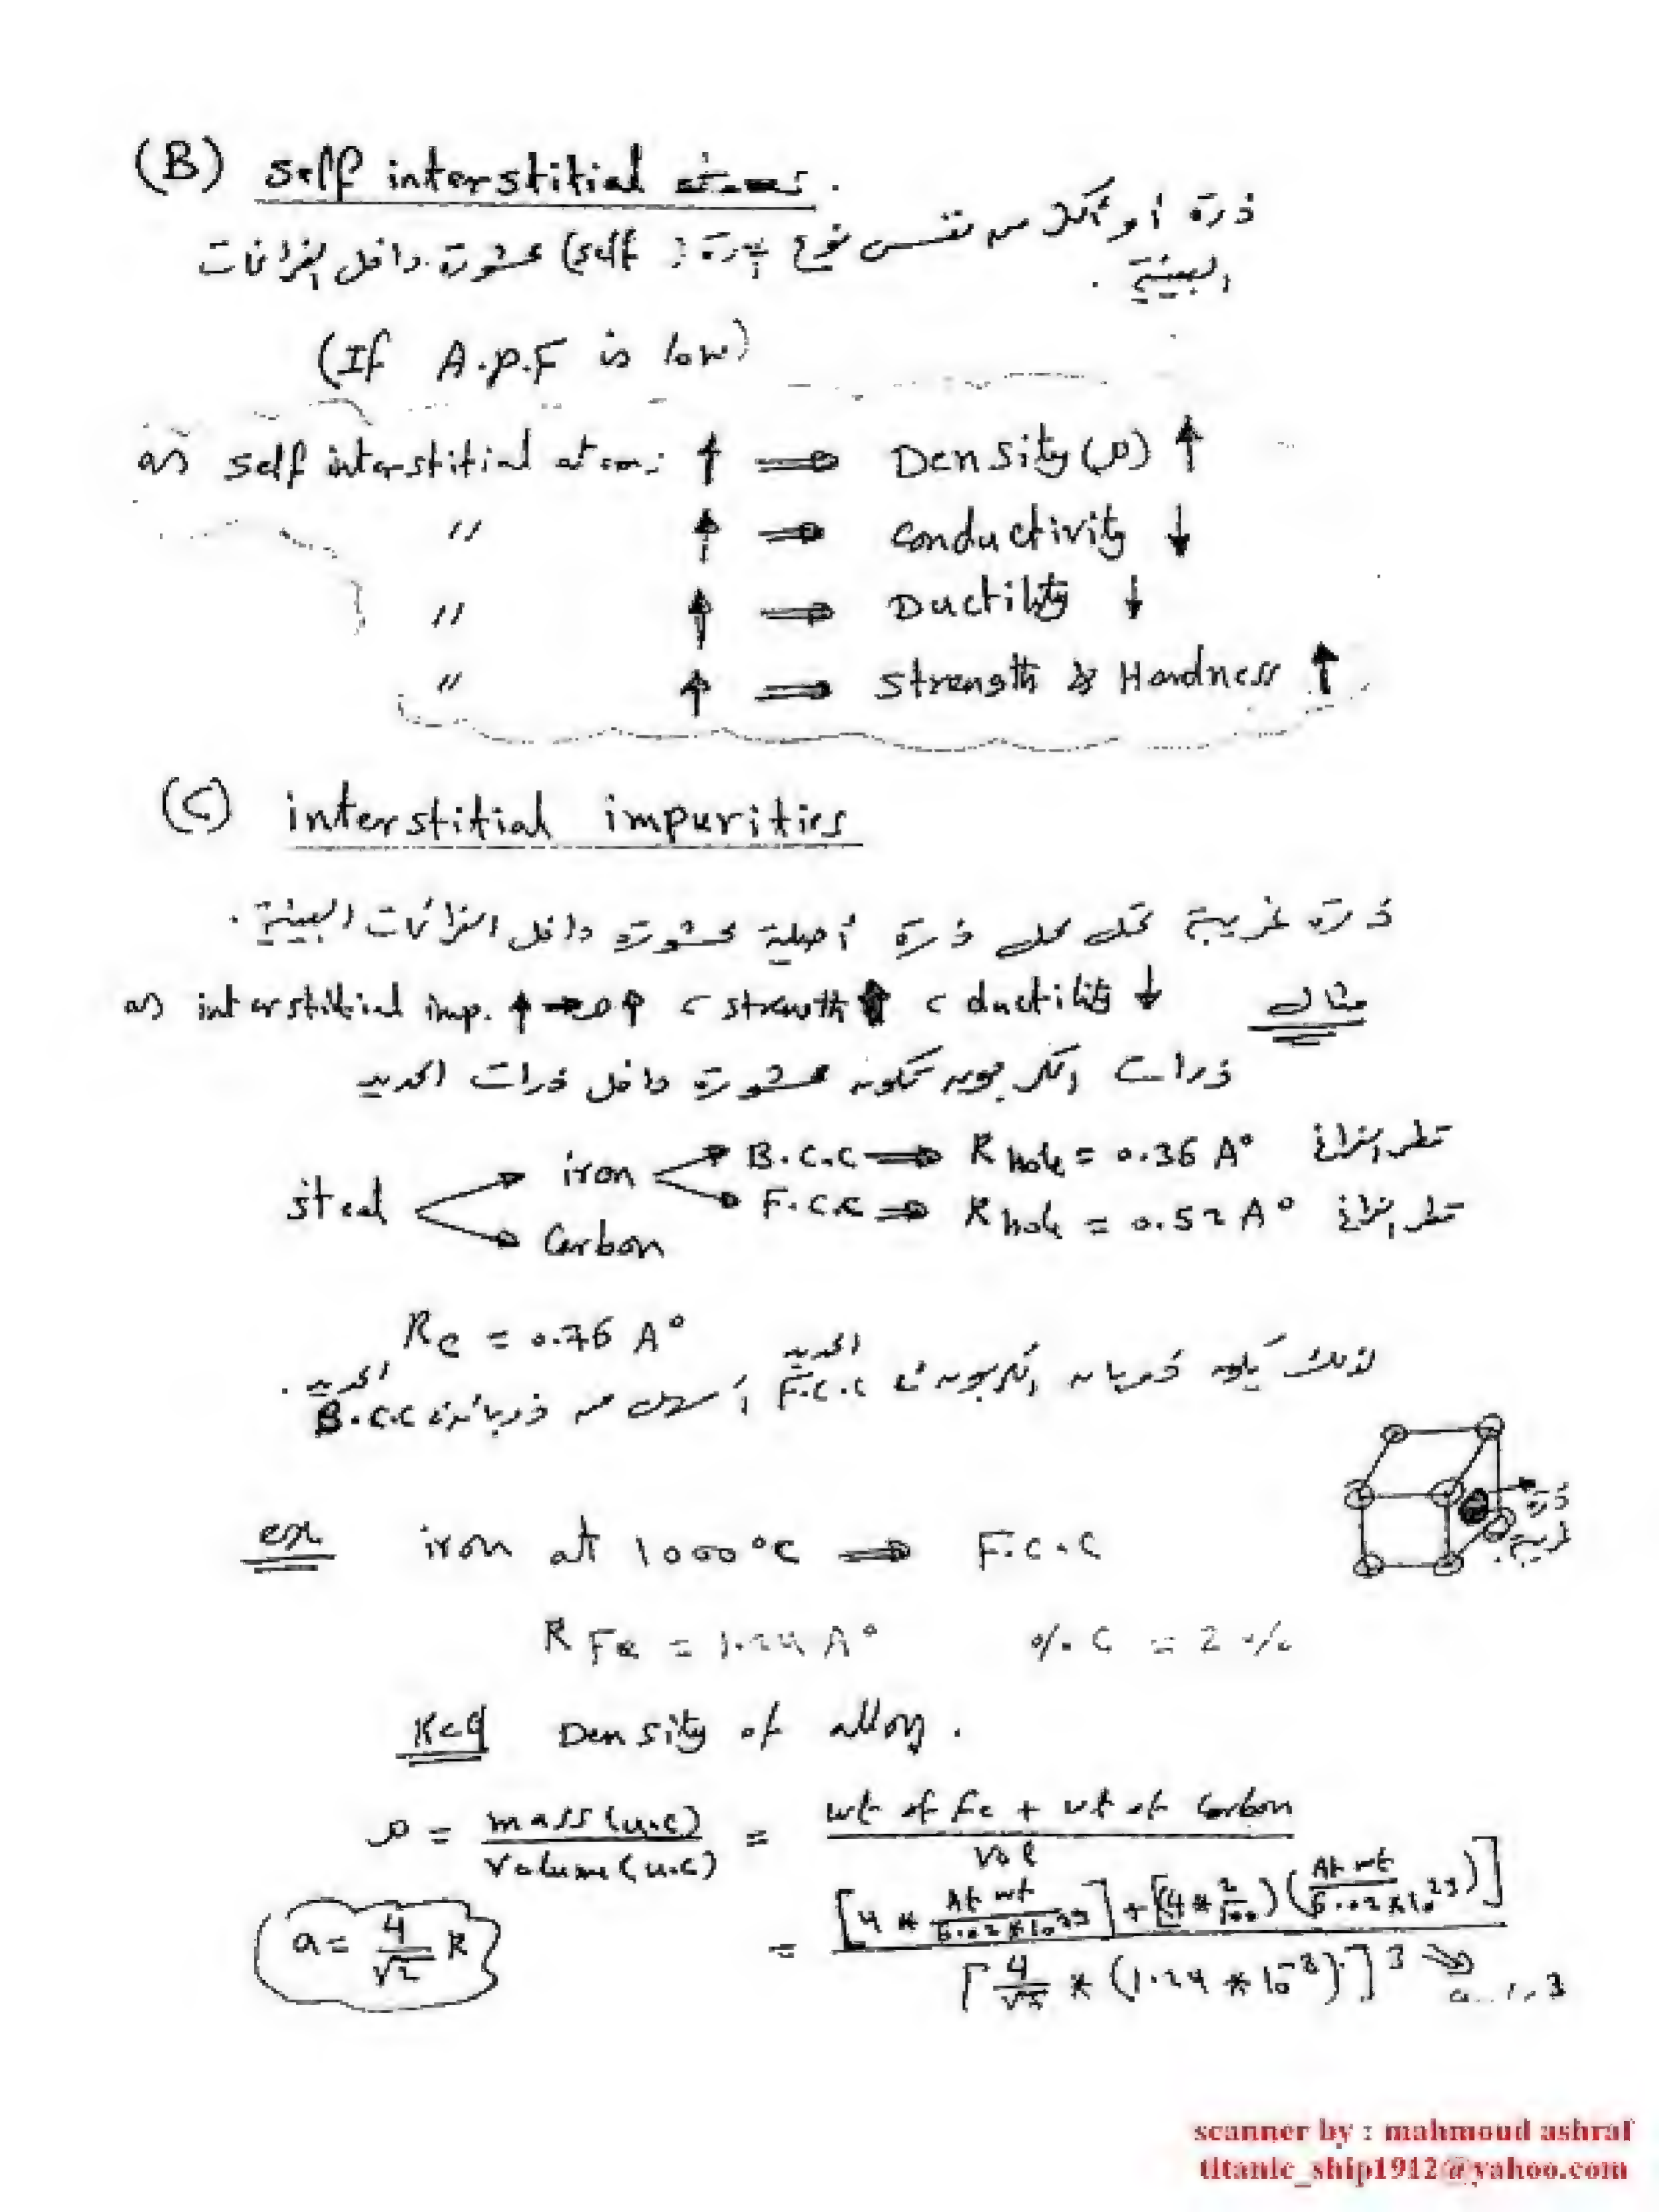 (B) self interstitial atoms.
ذرة أو أكثر من نفس نوع (self) محشورة داخل الفراغات
البينية.
(If A.P.F is low)
as self interstitial atoms ↑ ⟹ Density(ρ) ↑
" ↑ ⟹ Conductivity ↓
" ↑ ⟹ Ductility ↓
" ↑ ⟹ Strength & Hardness ↑
(C) interstitial impurities
ذرة غريبة تحل محل ذرة أصلية محشورة داخل الفراغات البينية.
as interstitial imp. ↑ → ρ↑ ، strength ↑ ، ductility ↓ مثال
ذرات الكربون تكون محشورة داخل ذرات الحديد
steel iron B.C.C ⟹ R hole = 0.36 A° قطر الفراغ
F.C.C ⟹ R hole = 0.52 A° قطر الفراغ
Carbon
Rc = 0.76 A°
لذلك يكون ذوبان الكربون في الحديد F.C.C أسهل من ذوبانه في الحديد B.C.C.
ذرة
غريبة
ex iron at 1000°C ⟹ F.C.C
R Fe = 1.24 A° %C = 2%
Req Density of alloy.
ρ = mass(u.c) / Volume(u.c) = wt of Fe + wt of Carbon / Vol
a = 4/√2 R
= [4 * At wt / 6.02*10^23] + [(4 * 2/100)(At wt / 6.02*10^23)] / [4/√2 * (1.24 * 10^-8)]^3
scanner by : mahmoud ashraf
titanic_ship1912@yahoo.com